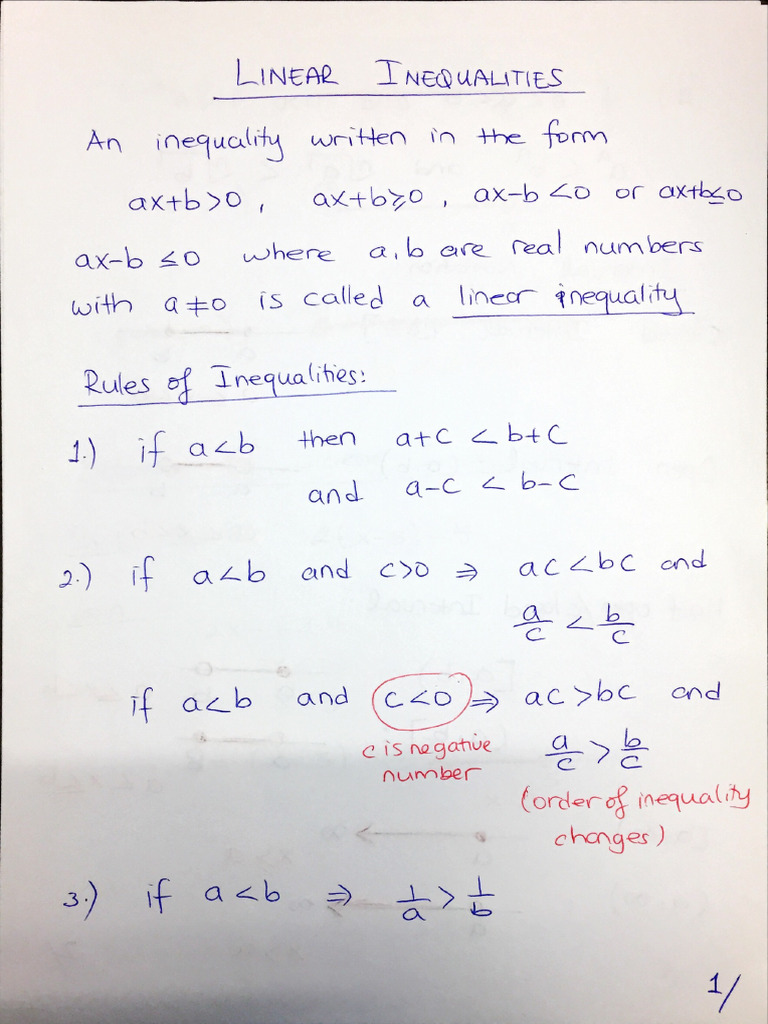 LINEAR INEQUALITIES
An inequality written in the form
ax+b>0, ax+b⩾0, ax-b<0 or ax+b≤0
ax-b ≤0 where a,b are real numbers
with a≠0 is called a linear inequality
Rules of Inequalities:
1.) if a<b then a+c <b+c
and a-c < b-c
2.) if a<b and c>0 ⇒ ac<bc and
a/c < b/c
if a<b and c<0 ⇒ ac>bc and
c is negative a/c > b/c
number (order of inequality
changes)
3.) if a<b ⇒ 1/a > 1/b
1/